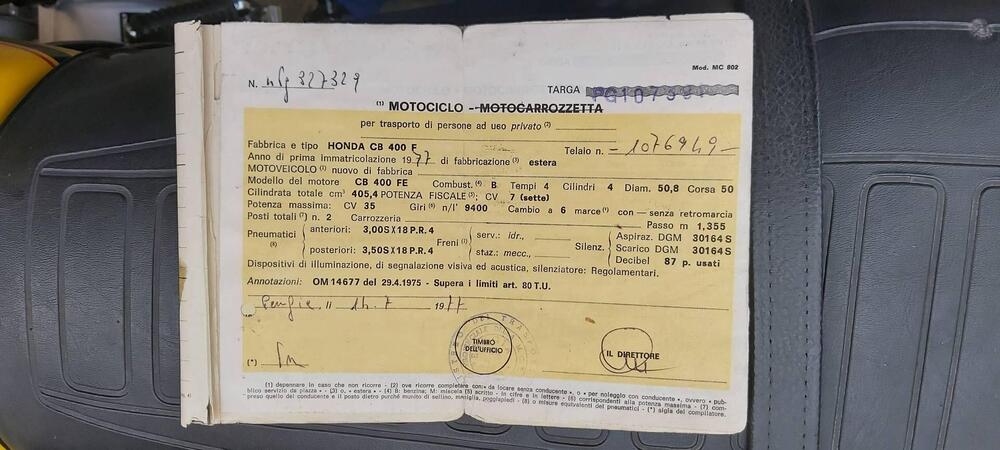 Mod. MC 802
N. 327329 TARGA
(1) MOTOCICLO - MOTOCARROZZETTA
per trasporto di persone ad uso privato (2)
Fabbrica e tipo HONDA CB 400 F Telaio n. - 1076949 -
Anno di prima immatricolazione 1977 di fabbricazione (3) estera
MOTOVEICOLO (1) nuovo di fabbrica
Modello del motore CB 400 FE Combust. (4) B Tempi 4 Cilindri 4 Diam. 50,8 Corsa 50
Cilindrata totale cm³ 405,4 POTENZA FISCALE (5); CV 7 (sette)
Potenza massima: CV 35 Giri (6) n/l' 9400 Cambio a 6 marce (1) con — senza retromarcia
Posti totali (7) n. 2 Carrozzeria Passo m 1,355
Pneumatici (8) anteriori: 3,00SX18 P.R.4 Freni (1) serv.: idr., Silenz. Aspiraz. DGM 30164 S
Scarico DGM 30164 S
posteriori: 3,50SX18 P.R.4 staz.: mecc., Decibel 87 p. usati
Dispositivi di illuminazione, di segnalazione visiva ed acustica, silenziatore: Regolamentari.
Annotazioni: OM 14677 del 29.4.1975 - Supera i limiti art. 80 T.U.
lì 14.7 1977
TIMBRO
DELL'UFFICIO
IL DIRETTORE
(*)
(1) depennare in caso che non ricorre - (2) ove ricorre completare con: « da locare senza conducente », o « per noleggio con conducente », ovvero « pub-
blico servizio da piazza » - (3) o, « estera » - (4) B: benzina; M: miscela (5) scritto - in cifre e in lettere - (6) corrispondenti alla potenza massima - (7) com-
preso quello del conducente e il posto dietro purché munito di sellino, maniglia, poggiapiedi - (8) o misure equivalenti del pneumatici - (*) sigla del compilatore.